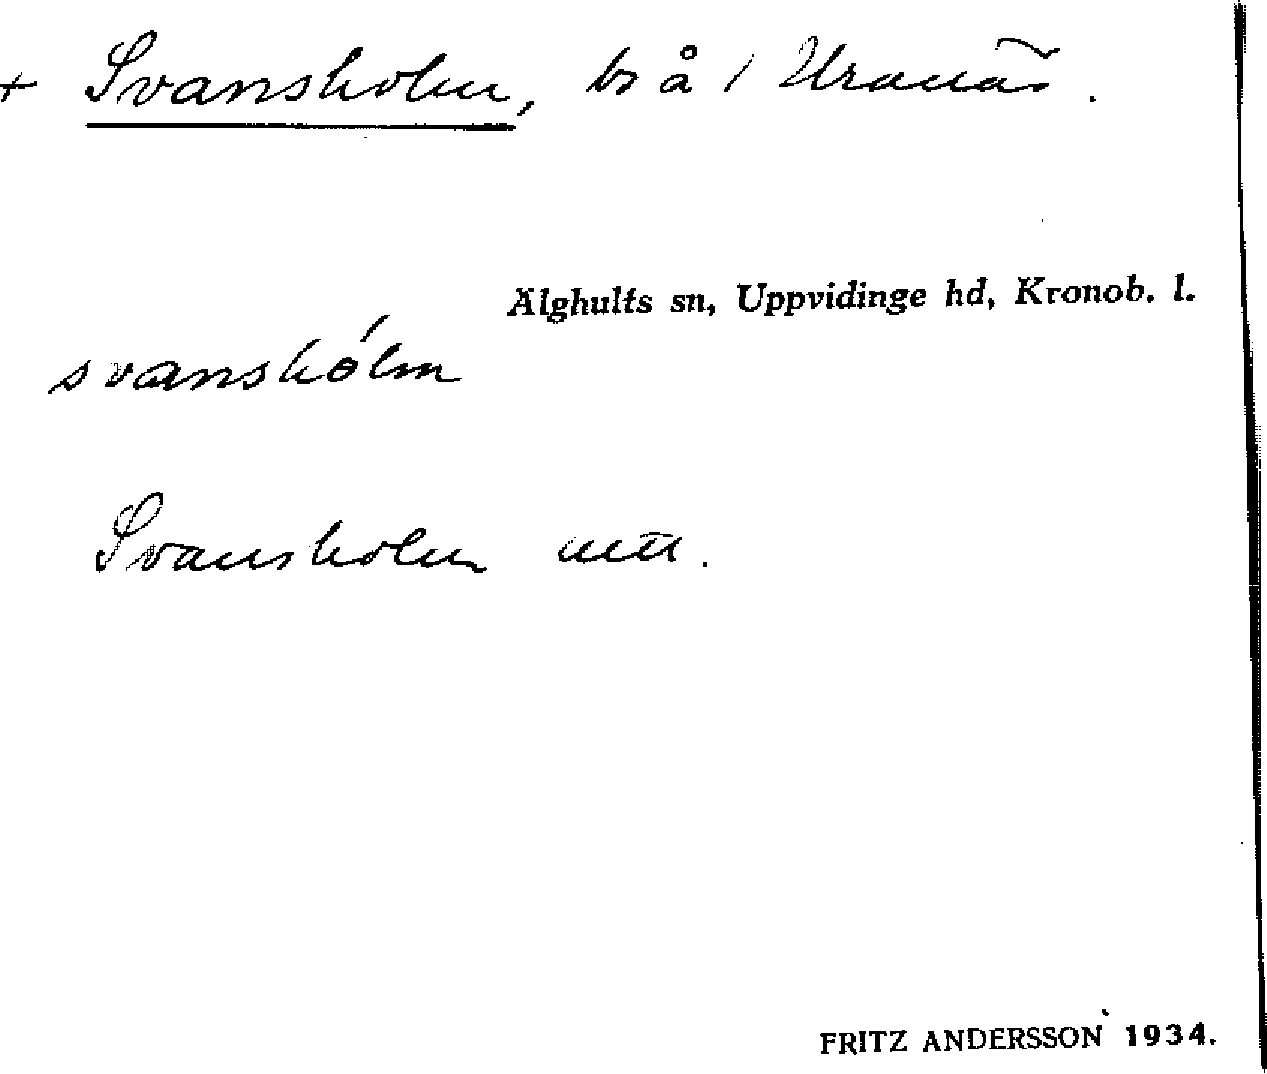 + Svansholm, bs å 1 Uranäs.
Älghults sn, Uppvidinge hd, Kronob. l.
svanshólm
Svansholm mtl.
FRITZ ANDERSSON 1934.